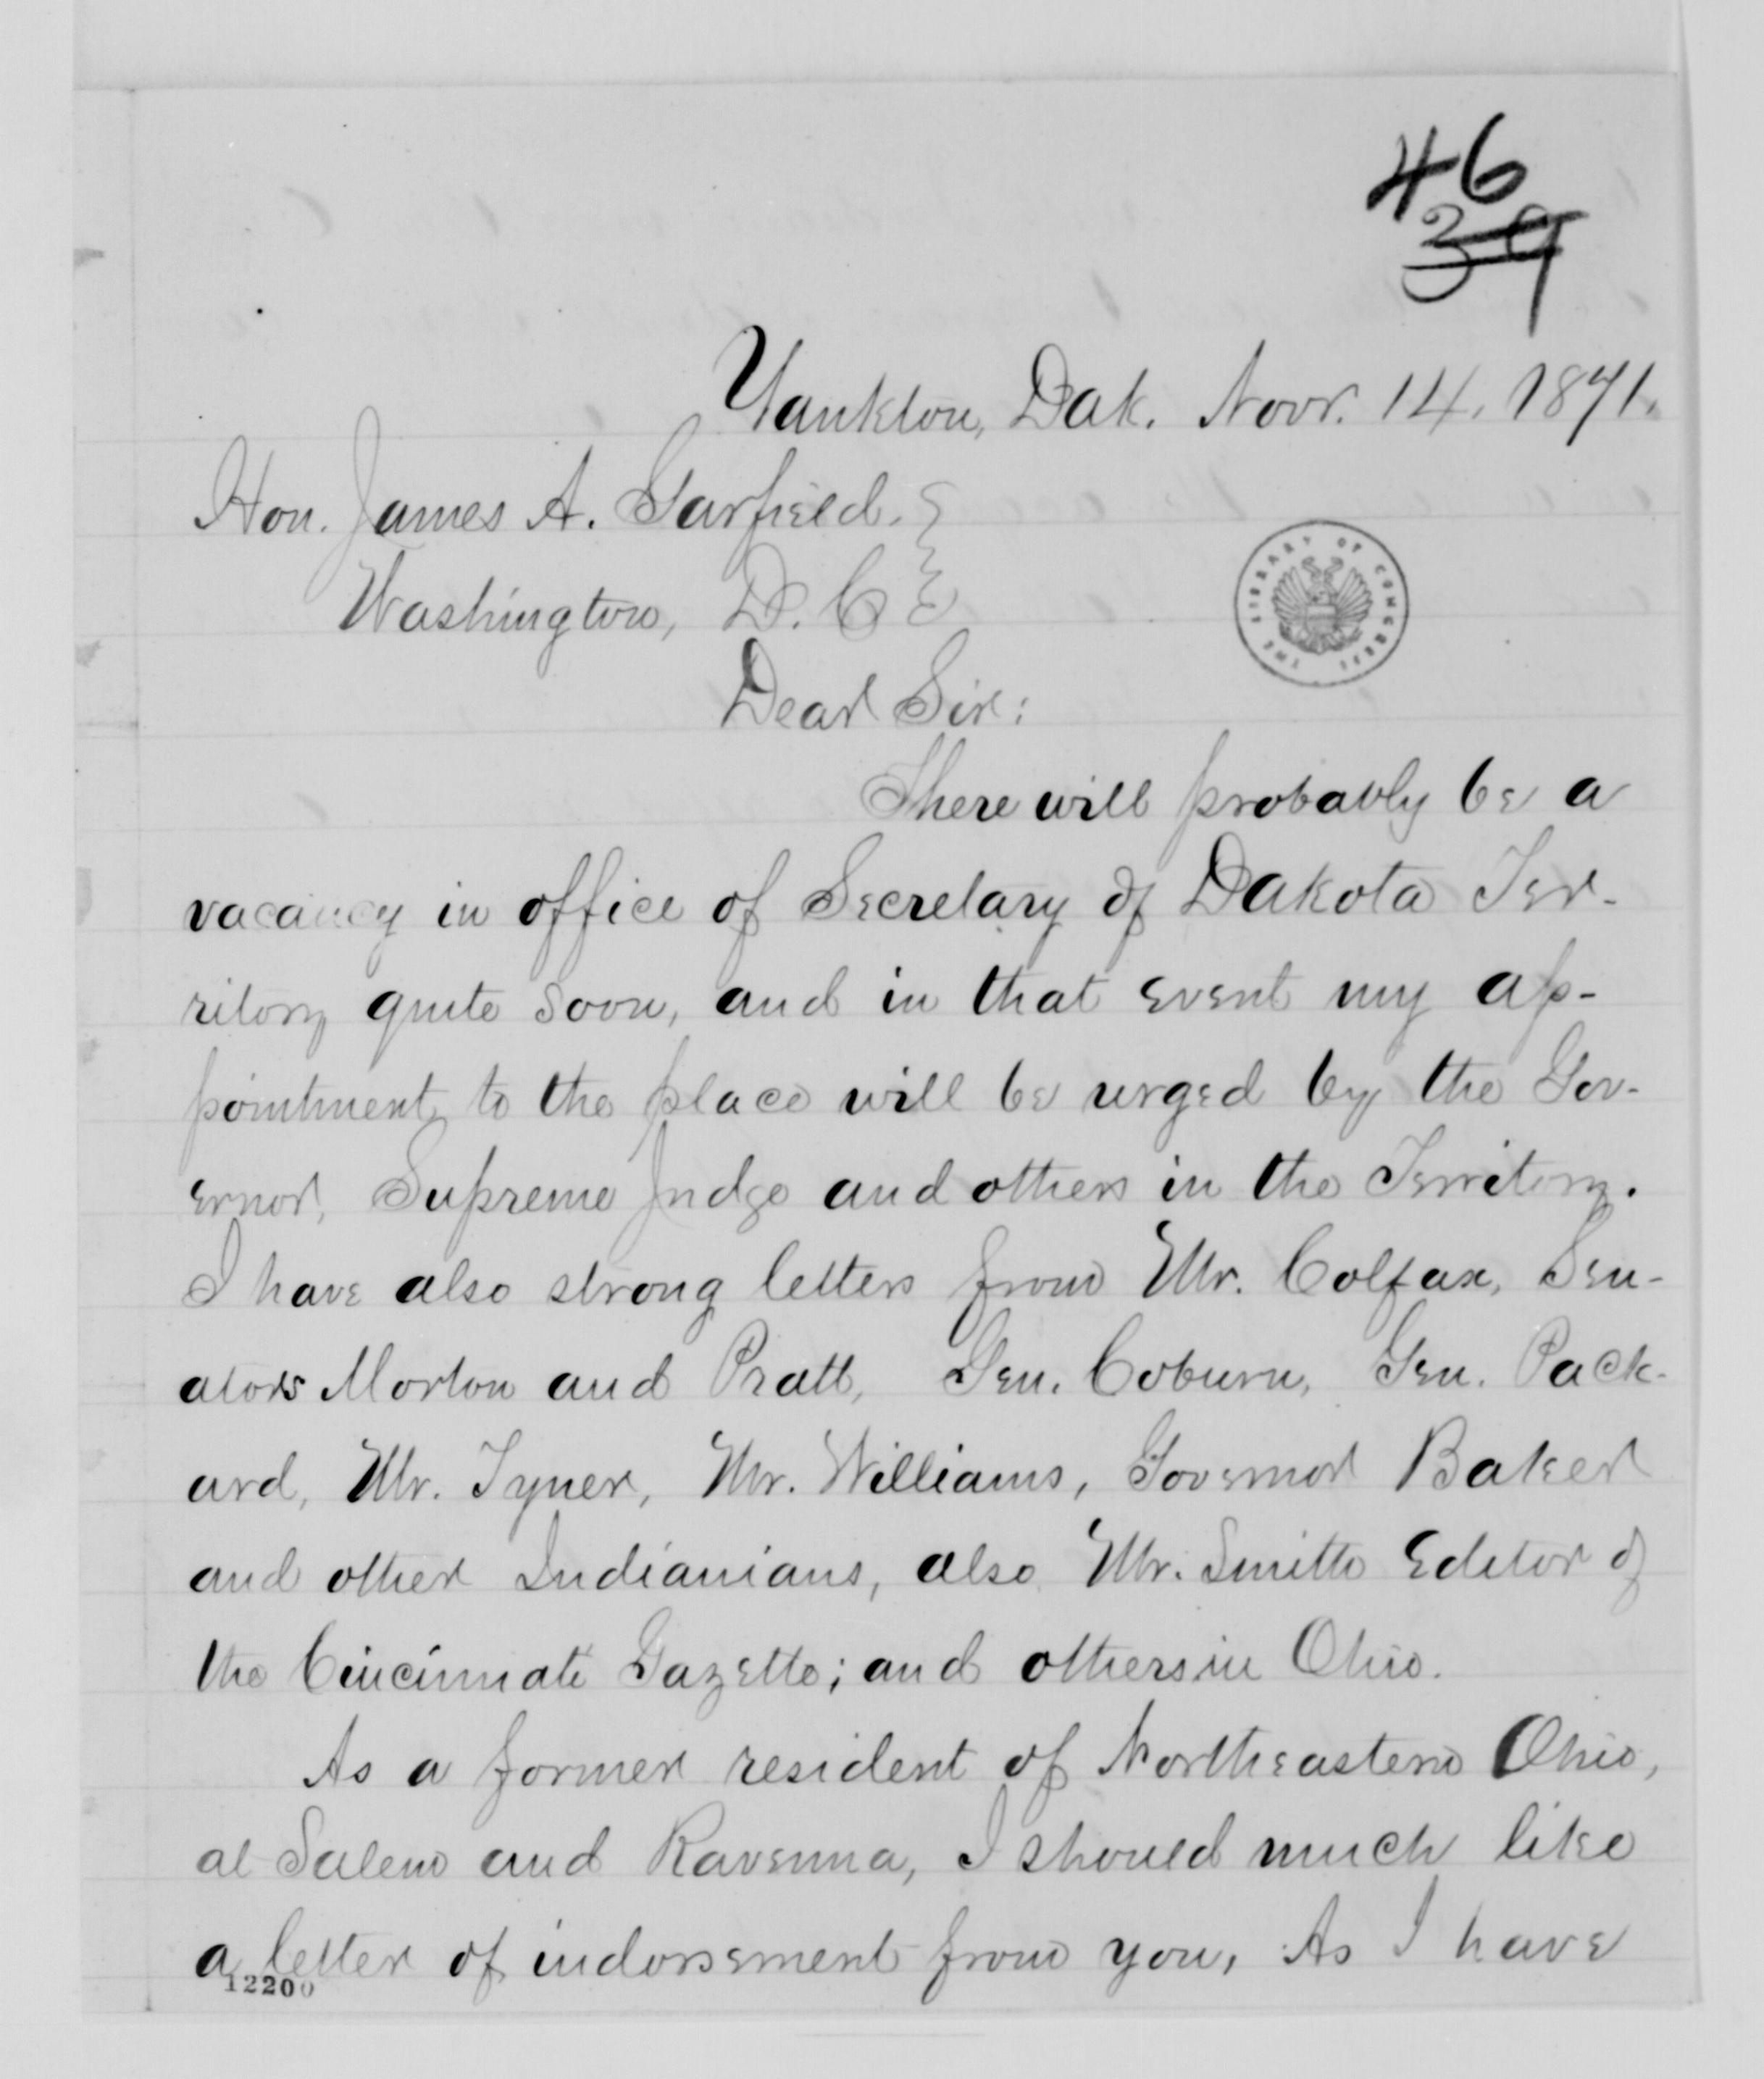 46
39
Yankton, Dak. Novr. 14, 1871.
Hon. James A. Garfield.
Washington, D. C
THE LIBRARY OF CONGRESS
Dear Sir:
There will probably be a
vacancy in office of Secretary of Dakota Ter-
ritory quite soon, and in that event my ap-
pointment to the place will be urged by the Gov-
ernor, Supreme Judge and others in the Territory.
I have also strong letters from Mr. Colfax, Sen-
ators Morton and Pratt, Gen. Coburn, Gen. Pack-
ard, Mr. Tyner, Mr. Williams, Governor Baker
and other Indianians, also Mr. Smith Editor of
the Cincinnati Gazette; and others in Ohio.
As a former resident of Northeastern Ohio,
at Salem and Ravenna, I should much like
a letter of indorsement from you, As I have
12200